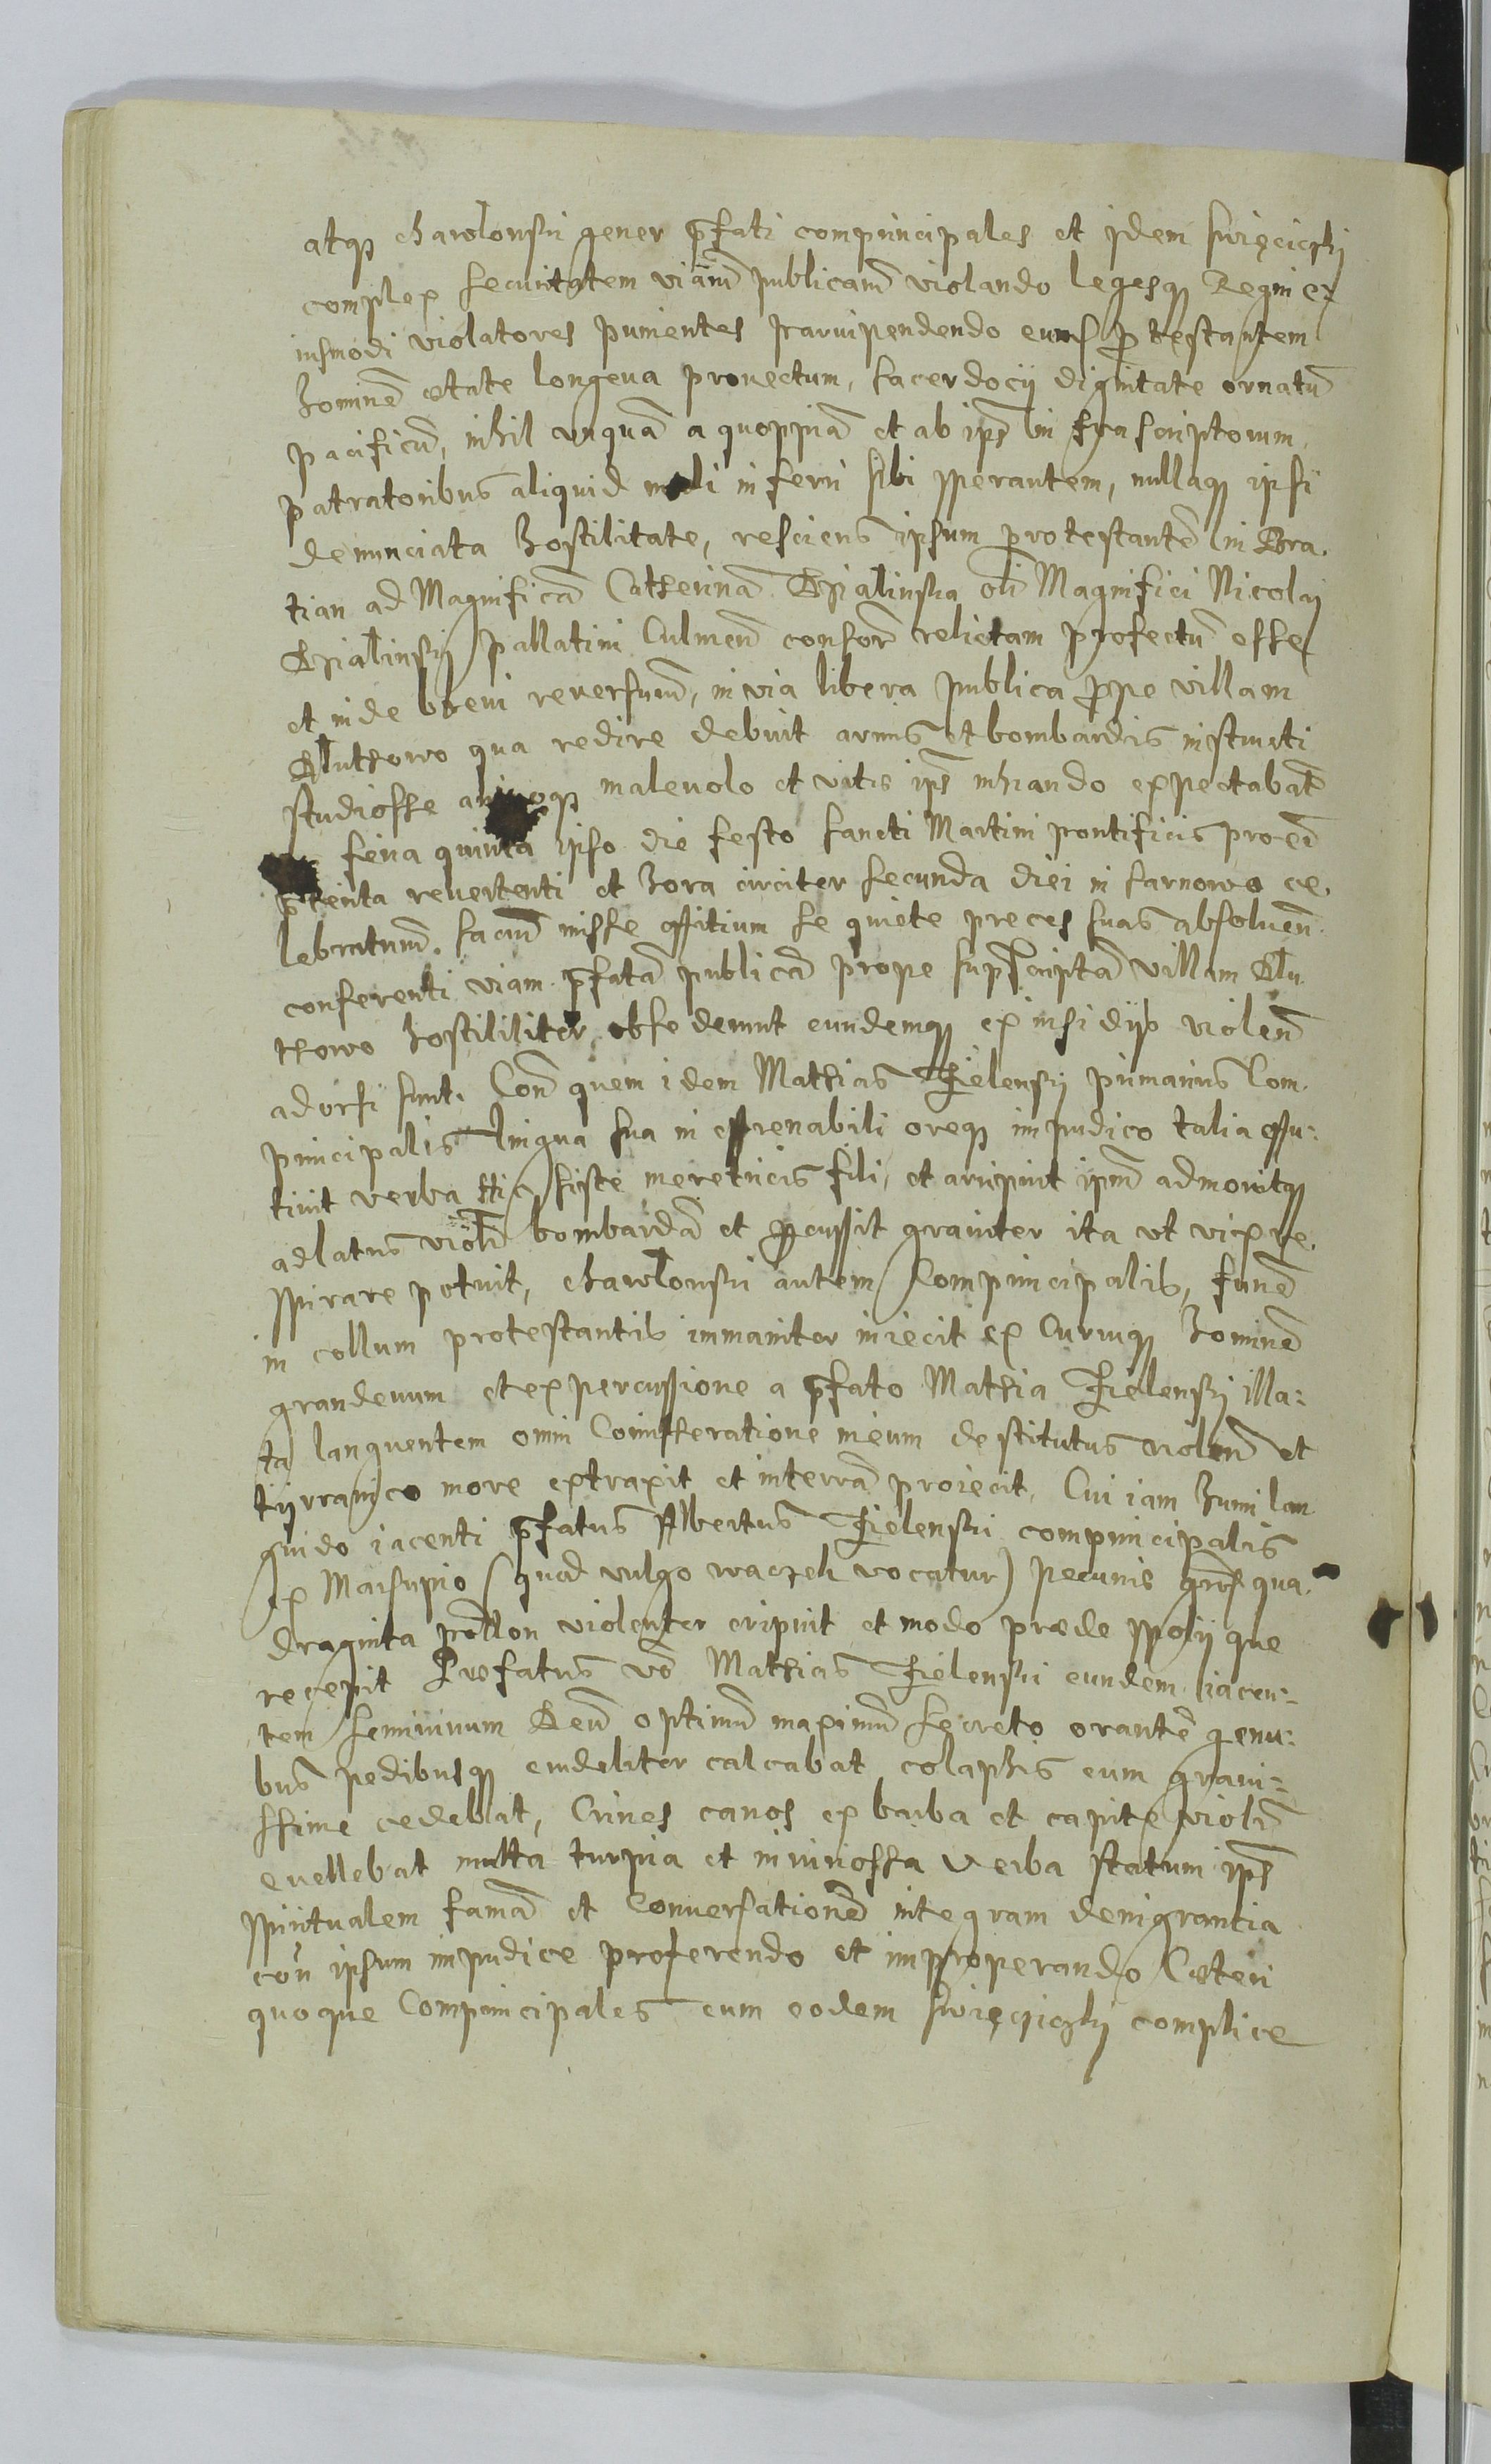 atqз chawlonsky gener p̄fati comprincipales et jdem swięciczky
complex securitatem viarū publicarū violando legesqз Regni e
iusmodi violatores punientes paruipendendo eund protestantem
hominē etate longeua prouectum, sacerdocÿ dignitate ornatū
pacificū, nihil vnquā a quopiā et ab ips̄ infrascriptorum
patratoribus aliquid mali inferri sibi sperantem, nullaqз ipsi
denunciata hostilitate, resciens ipsum protestantē in Bra.
tian ad Magnificā Catherinā Dzialinska oli Magnifici Nicolaj
Dzialinskj pallatini Culmeñ consor̄ relictam profectū esse
et inde breui reuersurū, in via libera publica prope villam
Dluthowo qua redire debuit armis et bombardis instructi
studiosse animoqз maleuolo et vitæ ips̄ inhiando expectabāt
feria quinta ipso die festo sancti Martini pontificis pro
p̄terita reuertenti et hora circiter secunda diei in sarnowo ce,
lebratum. sacrū misse offitium se quiete preces suas absoluen̄
conferenti viam p̄fatā publicā prope suprascriptā villam Dlu
thowo hostililiter obsederunt eundemqз ex insidÿs violen̄
adorsi sunt. Con̄ quem idem Mathias Zielensky primarius Com
principalis lingua sua in effrenabili oreqз impudico talia effu:
tiuit verba Hic siste meretricis fili, et arripuit ipm̄ admouitqз
ad latus violn̄ bombardā et percussit grauiter ita vt vix re,
spirare potuit, chawlonsky autem Comprincipalis, funē
in collum protestantis immaniter iniecit ex Curruqз hominē
grandeuum et ex percussione a p̄fato Mathia Zielensky illa:
ta languentem omni Comiseratione meum destitutus violen̄ et
tyrranico more extraxit et in terrā proiecit, Cui iam humi lan
guido iacenti p̄fatus Albertus Zielensky comprincipalis
ex Marsupio (quod vulgo waczek vocatur) pecunis qua.
draginta violenter eripuit et modo prædæ spolÿ que
recepit Prefatus vo Mathias Zielensky eundem iacen:
tem semiuiuum Deū optimū maximū secreto orantē genu:
bus pedibusqз crudeliter calcabat colaphis eum graui:
ssime cedebat, Crines canos ex barba et capite violn̄
euellebat multa turpia et iniuriossa verba statum ips̄
spiritualem famā et Conuersationē integram denigrantia
con̄ ipsum impudice proferendo et improperando Cæteri
quoque Comprincipales cum eodem swięcicky complice